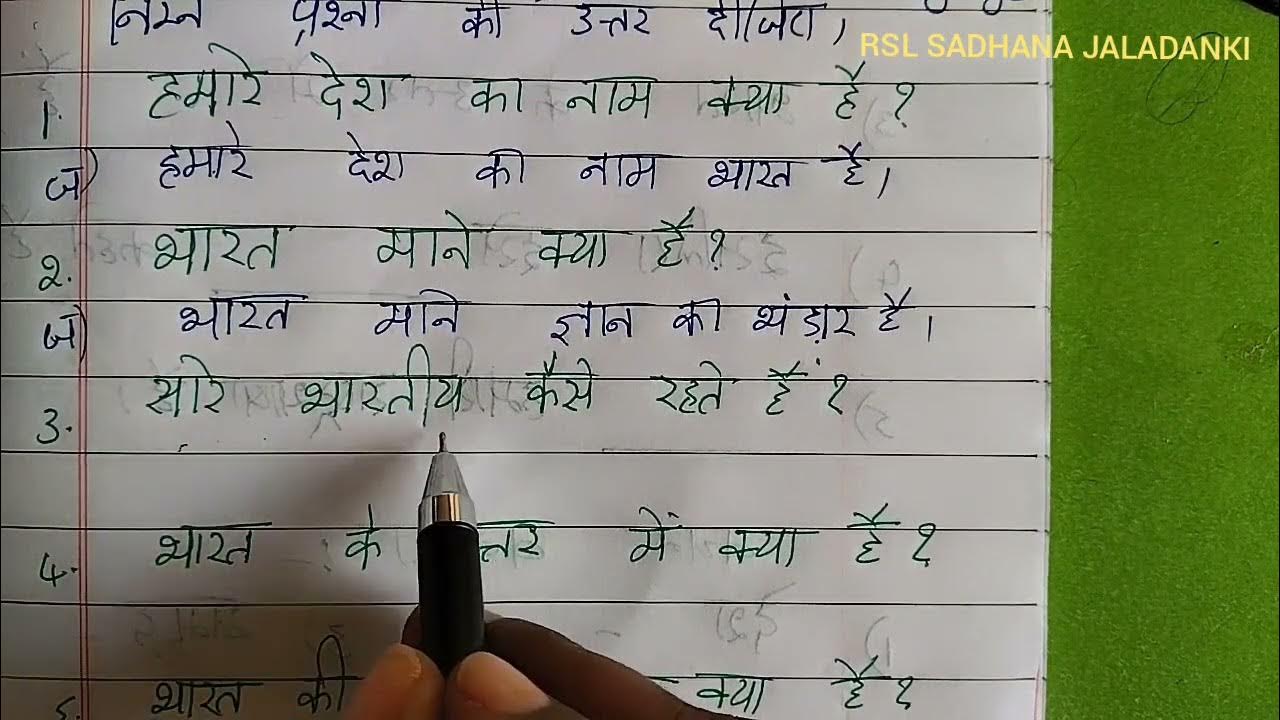 निम्न प्रश्नों की उत्तर दीजिए,
RSL SADHANA JALADANKI
1. हमारे देश का नाम क्या है ?
ज) हमारे देश की नाम भारत है।
2. भारत माने क्या है ?
ज) भारत माने ज्ञान की भंडार है।
3. सारे भारतीय कैसे रहते हैं ?
4. भारत के त्तर में क्या है ?
5. भारत की क्या है ?